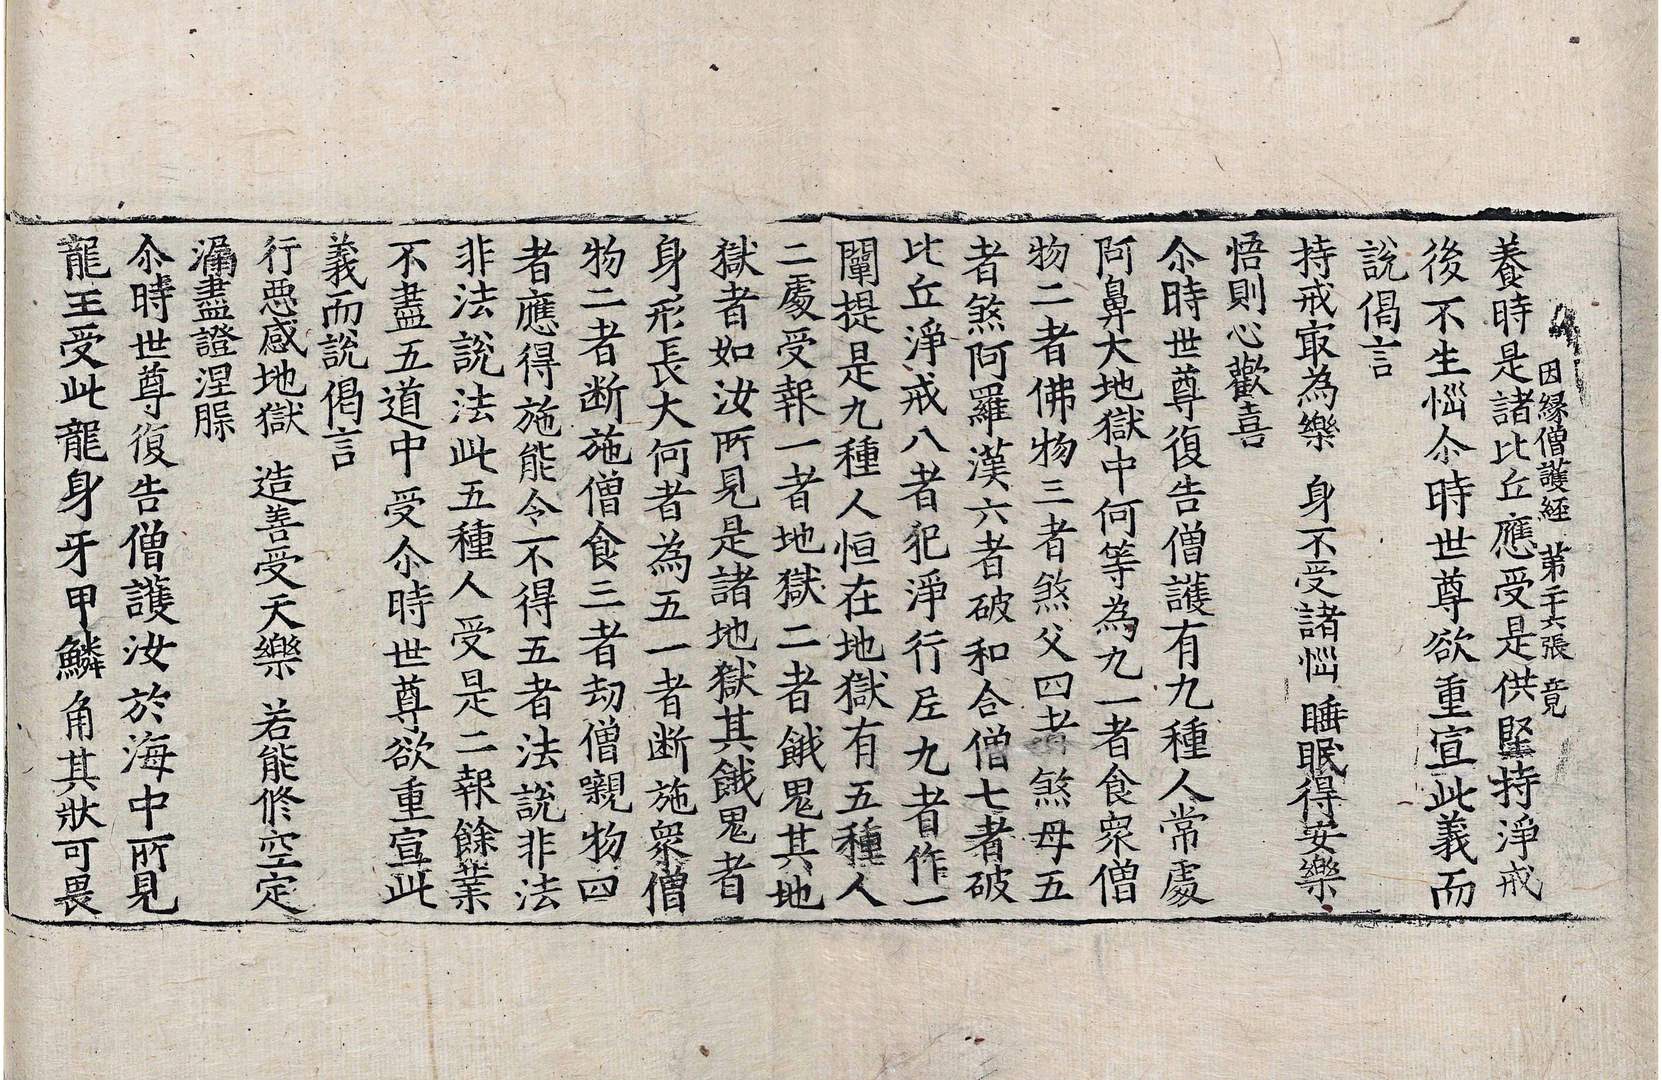 因縁僧護経 第二十六張 竟
養時是諸比丘應受是供堅持淨戒
後不生惱尒時世尊欲重宣此義而
說偈言
持戒㝡為樂 身不受諸惱 睡眠得安樂
悟則心歡喜
尒時世尊復告僧護有九種人常處
阿鼻大地獄中何等為九一者食衆僧
物二者佛物三者煞父四者煞母五
者煞阿羅漢六者破和合僧七者破
比丘淨戒八者犯淨行尼九者作一
闡提是九種人恒在地獄有五種人
二處受報一者地獄二者餓鬼其地
獄者如汝所見是諸地獄其餓鬼者
身形長大何者為五一者断施衆僧
物二者断施僧食三者劫僧嚫物四
者應得施能令不得五者法說非法
非法說法此五種人受是二報餘業
不盡五道中受尒時世尊欲重宣此
義而說偈言
行惡感地獄 造善受天樂 若能修空定
漏盡證涅脲
尒時世尊復告僧護汝於海中所見
龍王受此龍身牙甲鱗角其狀可畏